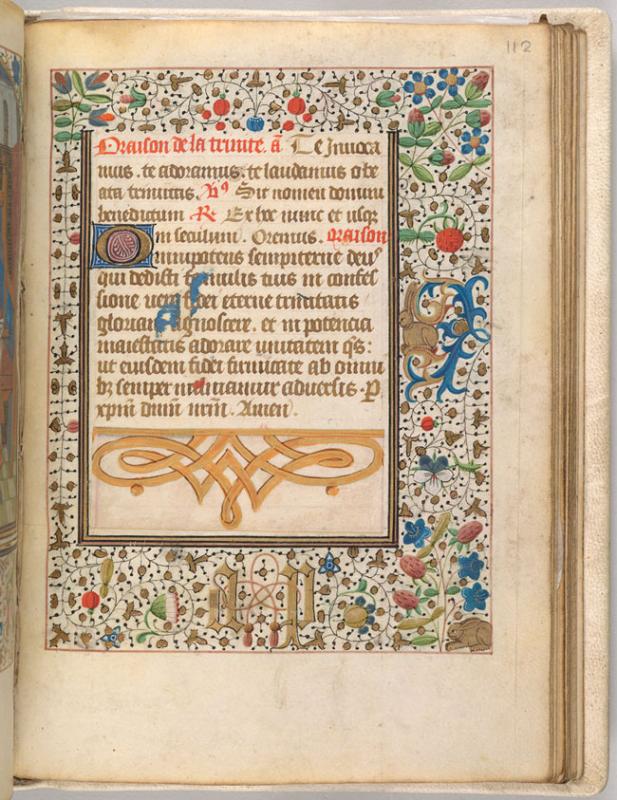 112
Oraison de la trinite. a͞. Te Inuoca
mus . te adoramus . te laudamus o be
ata trinitas . V9 Sit nomen domini
benedictum R Ex hoc nunc et usq3
in seculum . Oremus . oraison
Omnipotens sempiterne deus
qui dedisti famulis tuis in confes
sione vere fidei eterne trinitatis
gloriam agnoscere . et in potencia
maiestatis adorare unitatem q͞s :
ut eiusdem fidei firmitate ab omni
b3 semper muniamur aduersis . P
xp͞m dn͞m nr͞m . Amen .